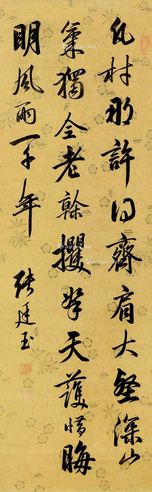 凡材那許得齊肩大壑深山
氣獨全老榦攫拏天護惜晦
明風雨一千年 張廷玉